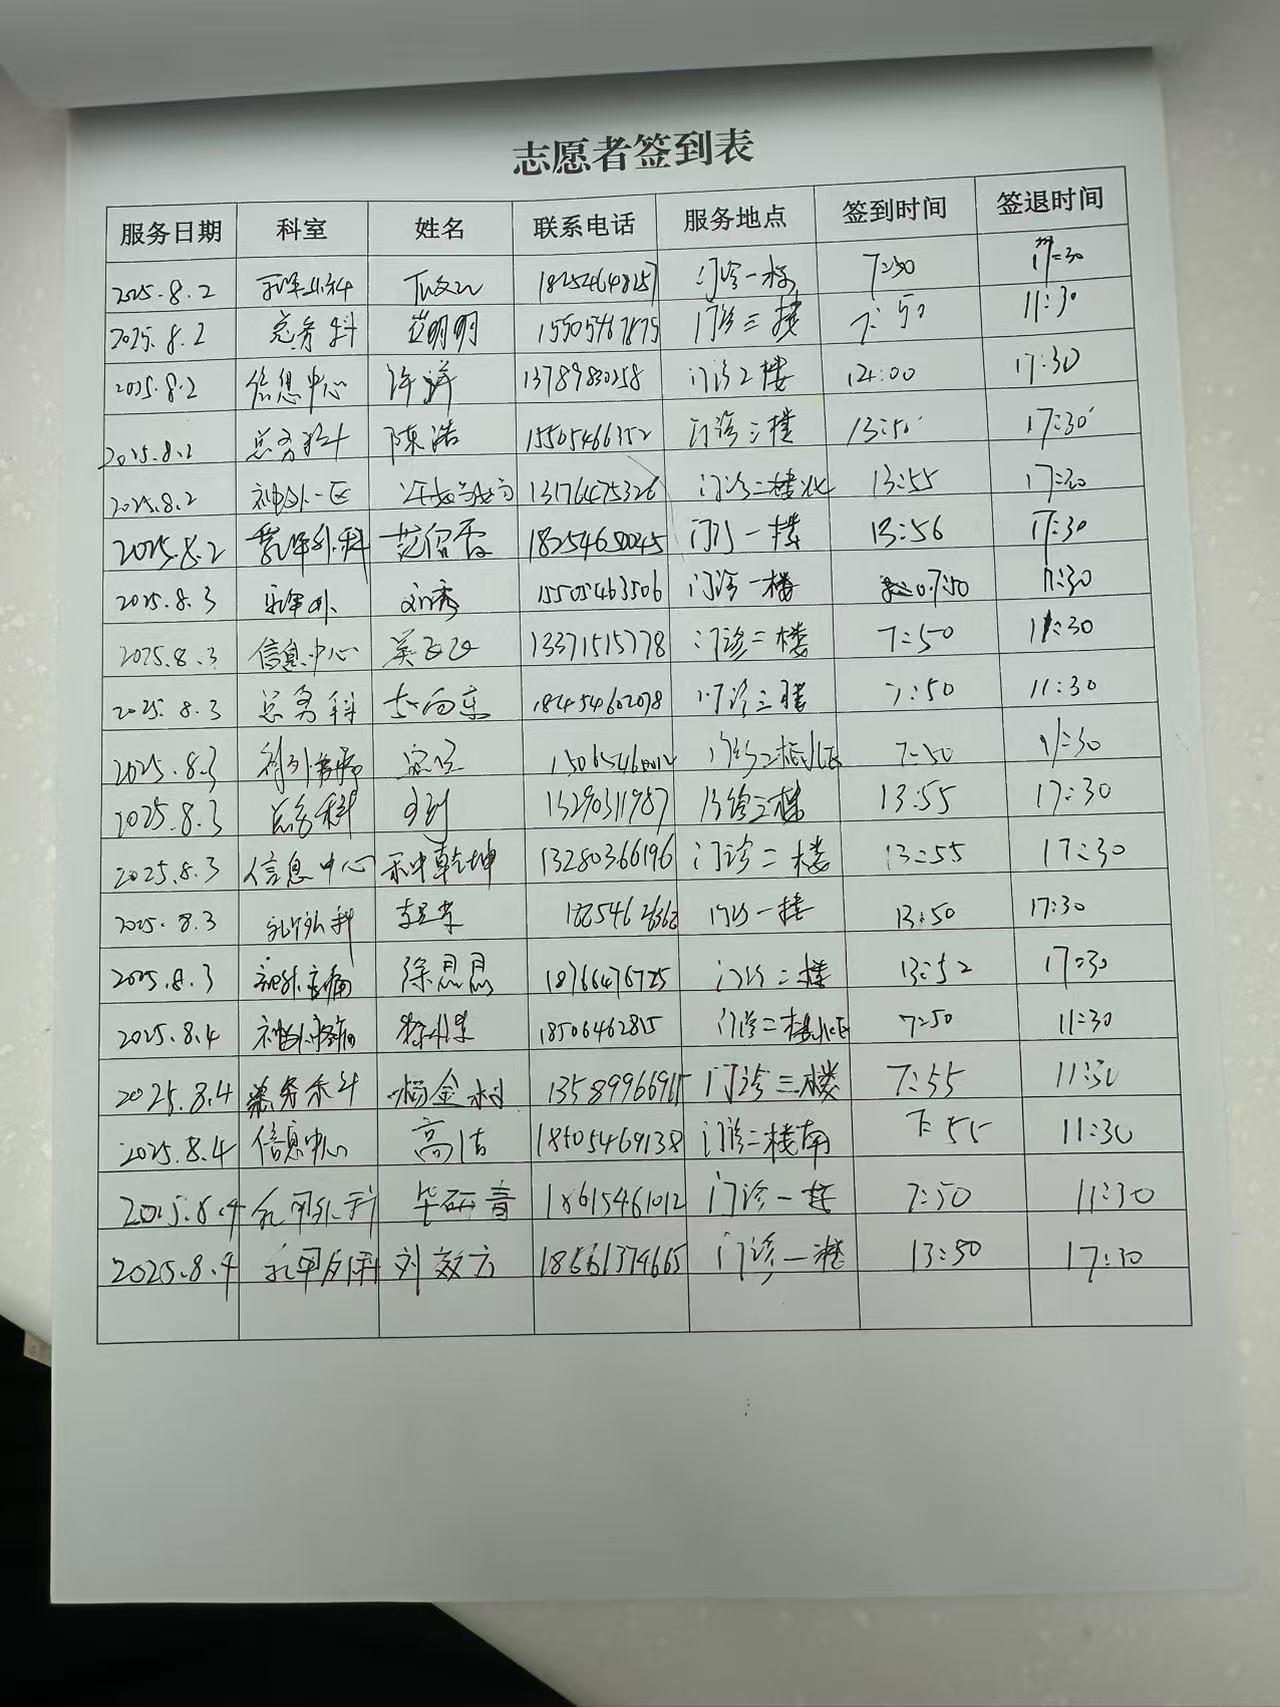 志愿者签到表
服务日期 科室 姓名 联系电话 服务地点 签到时间 签退时间
2025.8.2 18254648257 门诊一楼 7:50
2025.8.2 总务科 范明明 15505467875 门诊三楼 7:50 11:30
2025.8.2 信息中心 许洋 13789830258 门诊2楼 14:00 17:30
2025.8.2 总务科 陈浩 15505466352 门诊三楼 13:50 17:30
2025.8.2 神外一区 13176475326 门诊二楼北 13:55 17:30
2025.8.2 乳甲外科 18254650045 门诊一楼 13:56 17:30
2025.8.3 乳甲外 刘秀 15505463506 门诊一楼 7:50 11:30
2025.8.3 信息中心 13371515778 门诊二楼 7:50 11:30
2025.8.3 总务科 18454602078 门诊三楼 7:50 11:30
2025.8.3 门诊二楼北区 7:50 11:30
2025.8.3 总务科 13290311987 门诊三楼 13:55 17:30
2025.8.3 信息中心 种乾坤 13280366196 门诊二楼 13:55 17:30
2025.8.3 乳甲外科 门诊一楼 13:50 17:30
2025.8.3 徐思思 18766476725 门诊二楼 13:52 17:30
2025.8.4 18506462815 门诊二楼北区 7:50 11:30
2025.8.4 总务科 杨金村 门诊三楼 7:55 11:30
2025.8.4 信息中心 高洁 18505469138 门诊二楼南 7:55 11:30
2025.8.4 乳甲外科 毕研青 18615461012 门诊一楼 7:50 11:30
2025.8.4 乳甲外科 刘效方 18561374665 门诊一楼 13:50 17:30